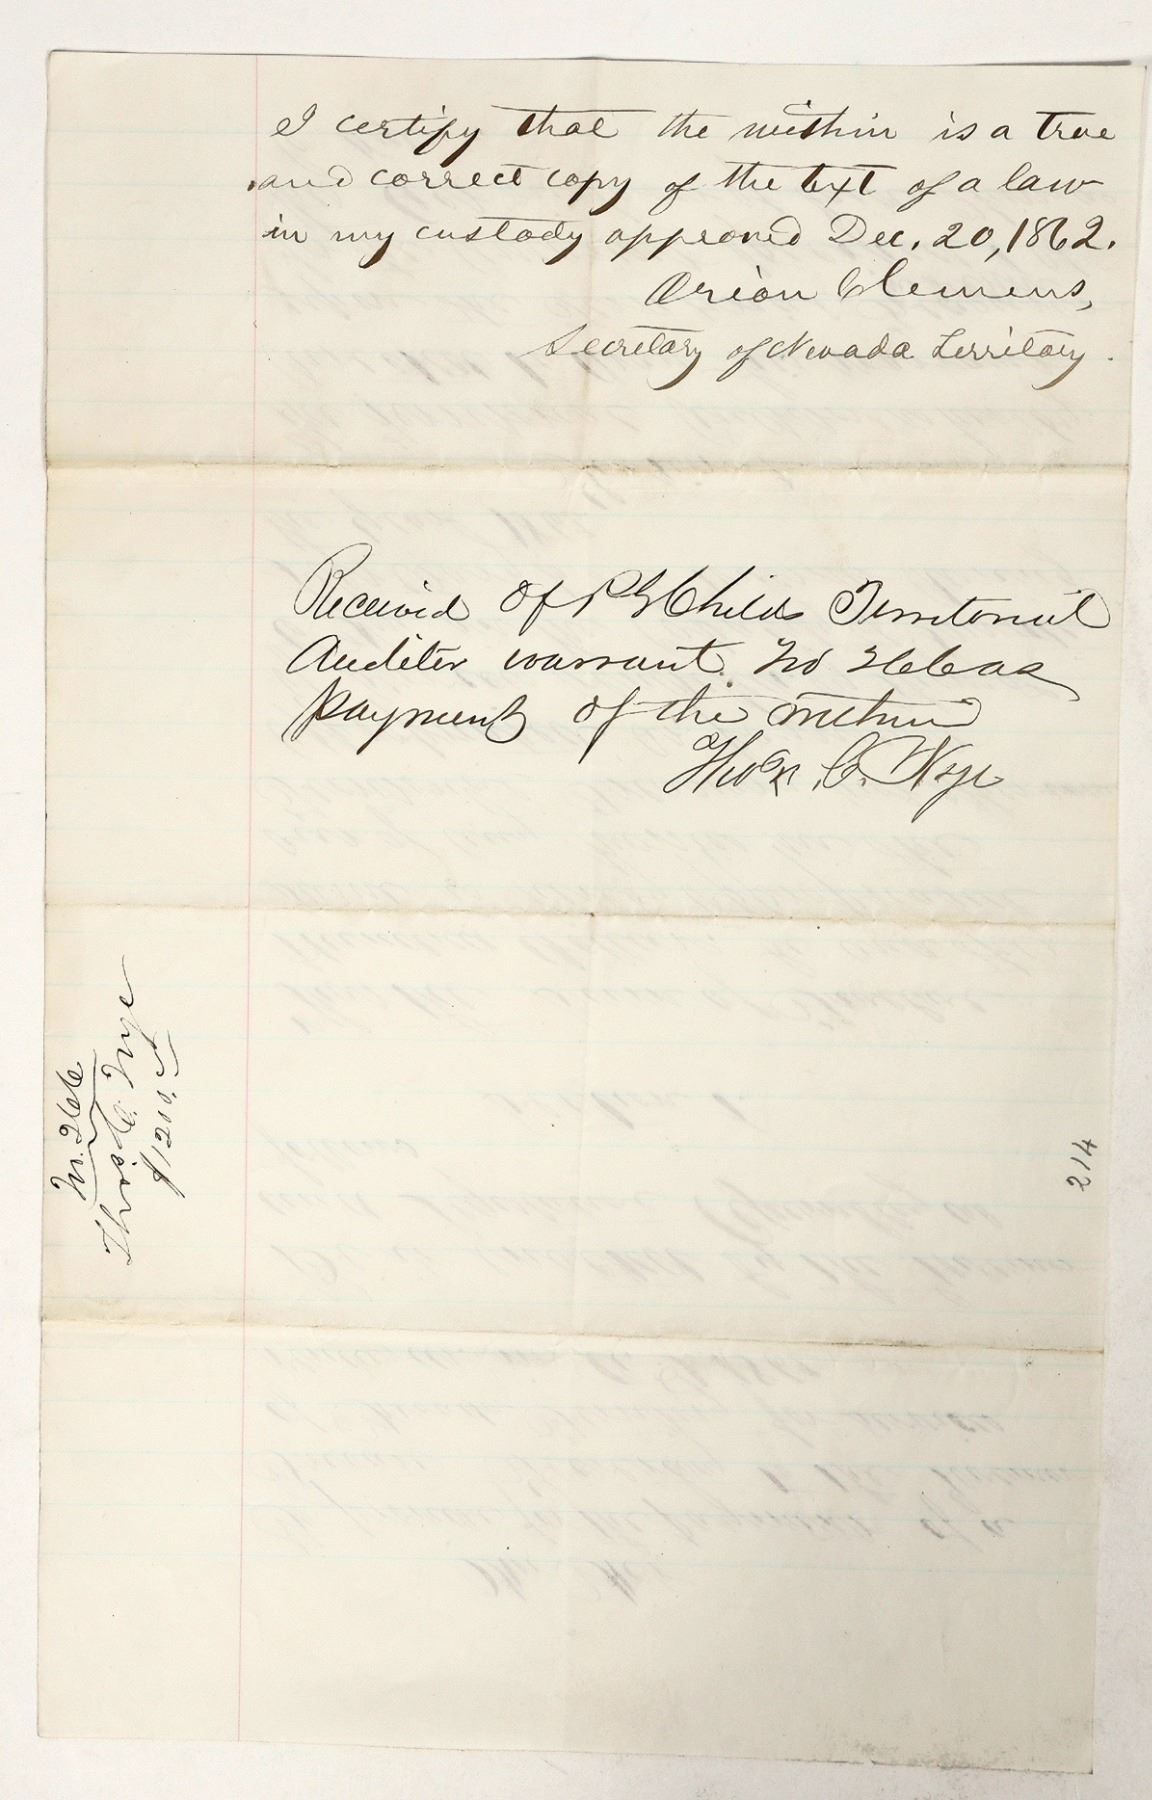 I certify that the within is a true
and correct copy of the text of a law
in my custody approved Dec. 20, 1862.
Orion Clemens,
Secretary of Nevada Territory.
Received of P G Childs Territorial
Auditer warrant No 266 as
payment of the within
Thos C. Nye
No. 266
Thos C. Nye
$120.
214